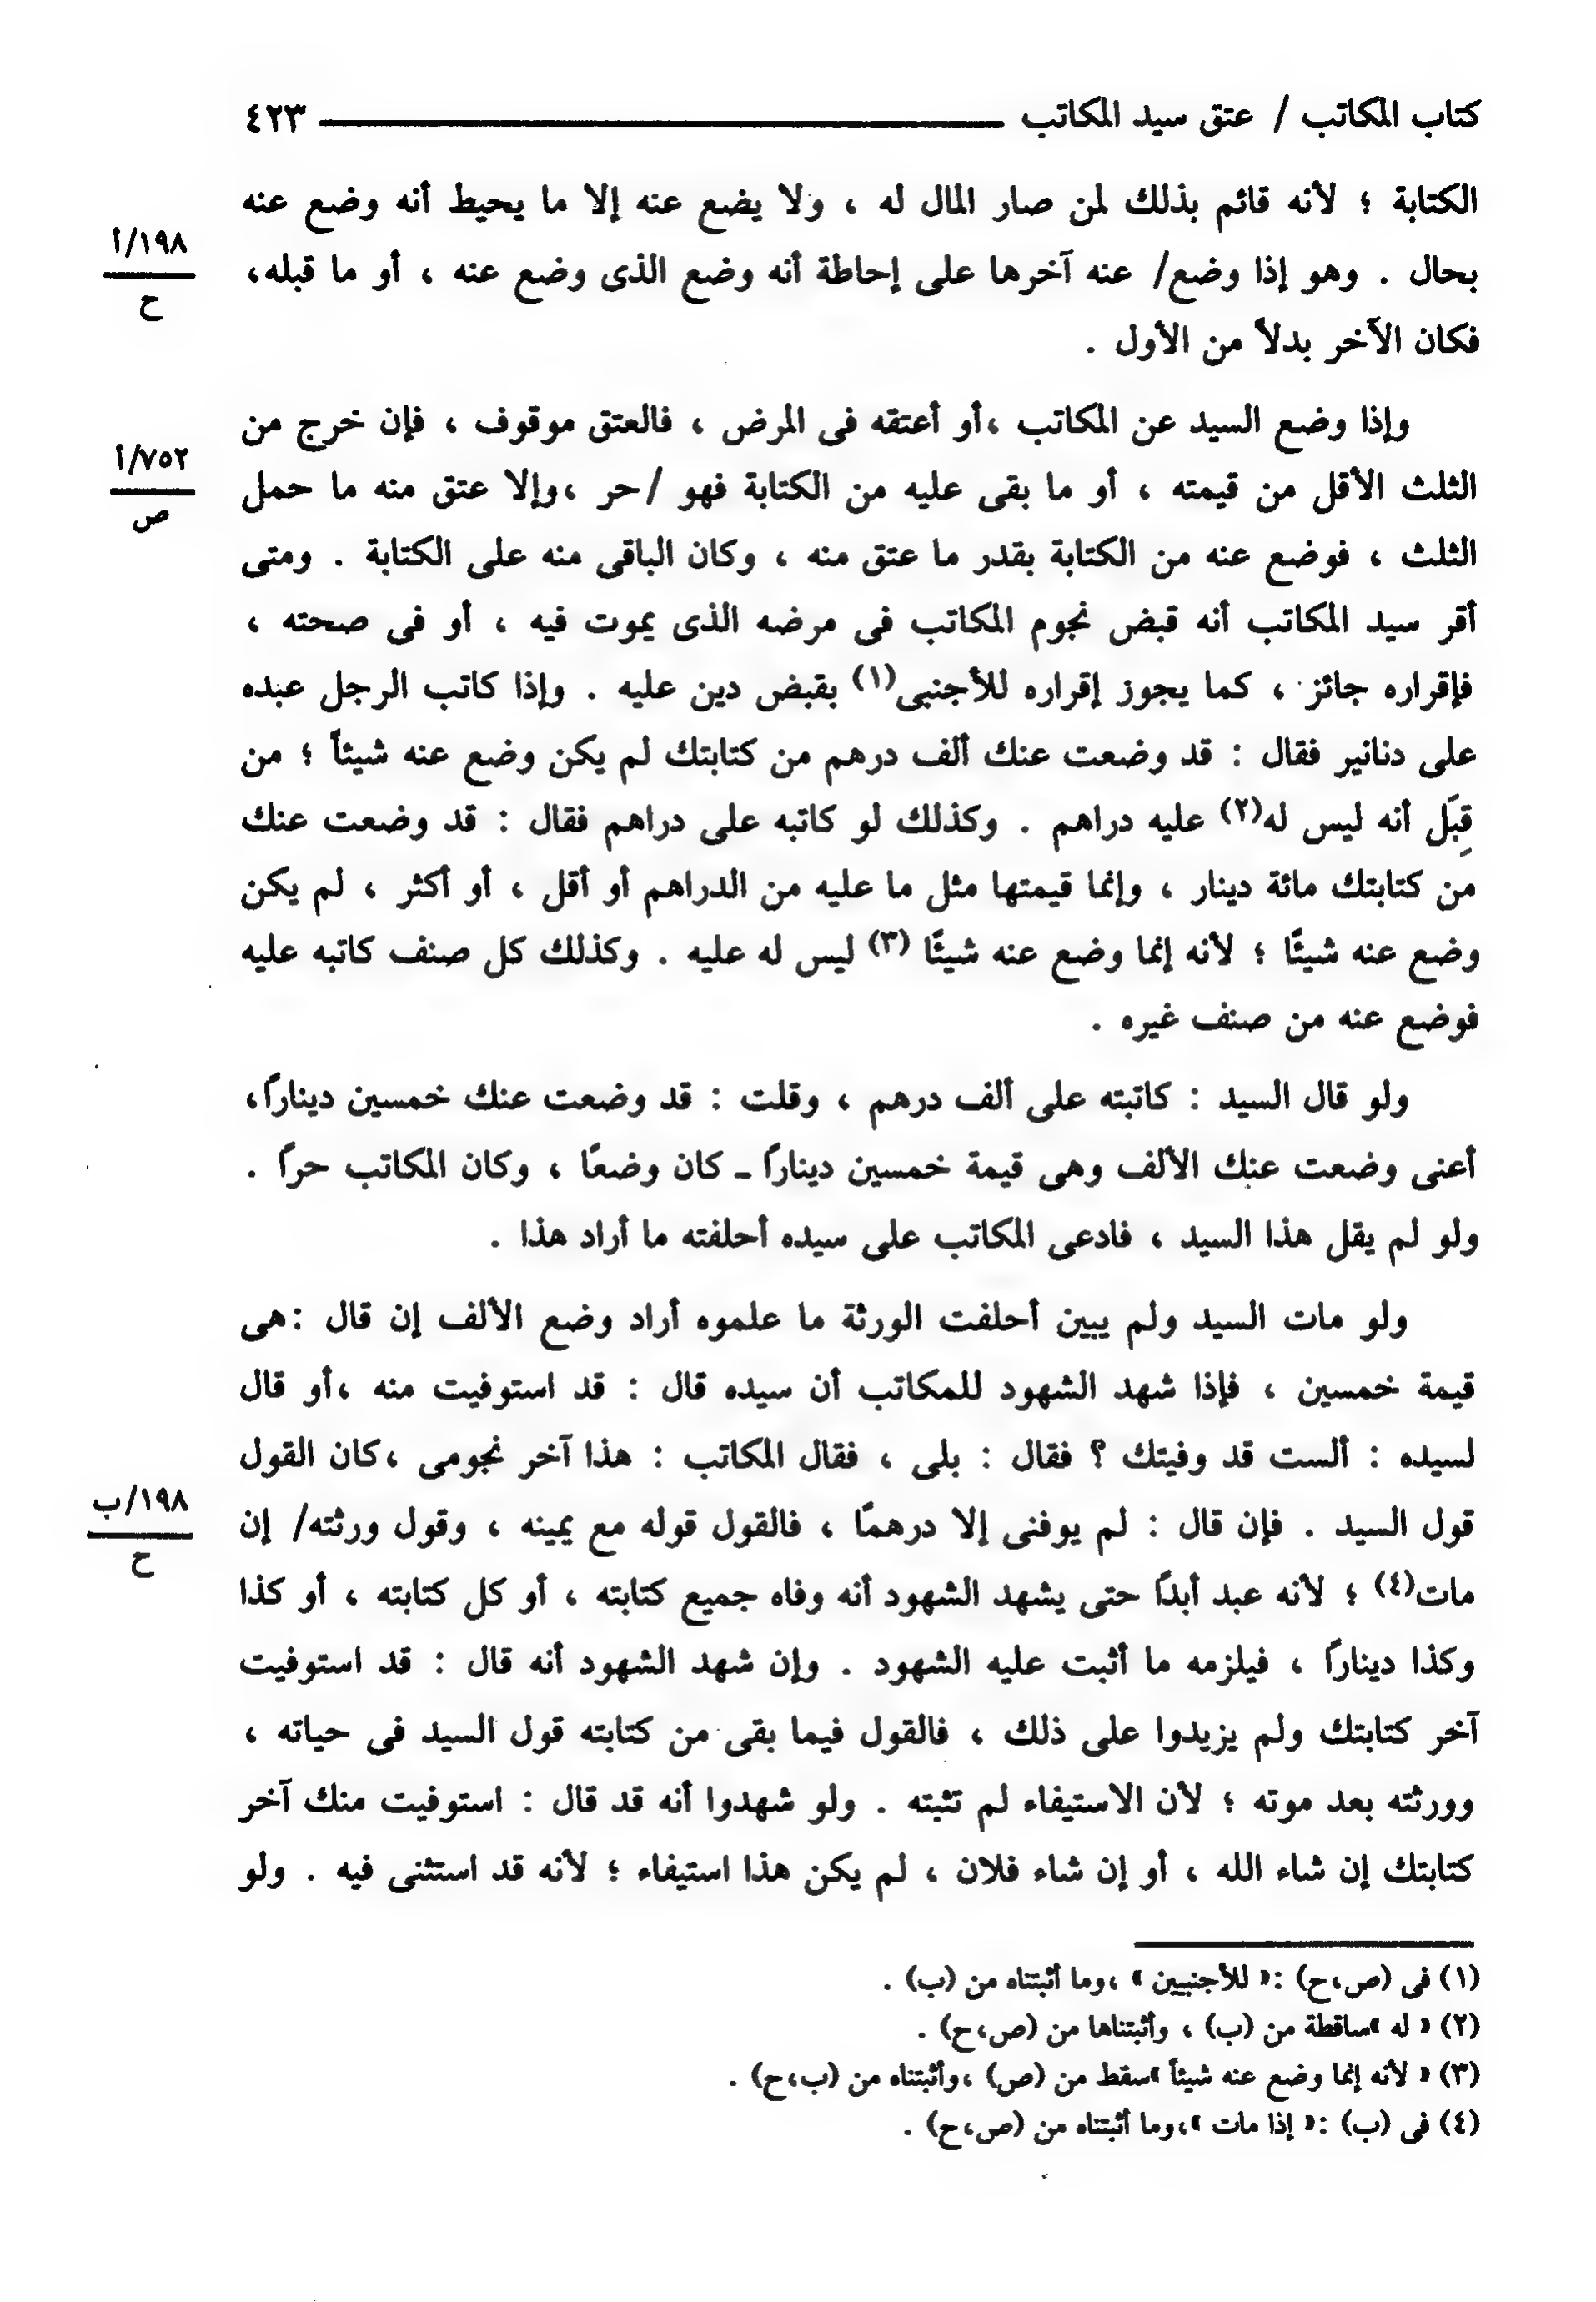 كتاب المكاتب / عتق سيد المكاتب ٤٢٣
الكتابة ؛ لأنه قائم بذلك لمن صار المال له ، ولا يضع عنه إلا ما يحيط أنه وضع عنه
١٩٨/أ
ح
بحال . وهو إذا وضع/ عنه آخرها على إحاطة أنه وضع الذى وضع عنه ، أو ما قبله،
فكان الآخر بدلاً من الأول .
وإذا وضع السيد عن المكاتب ،أو أعتقه فى المرض ، فالعتق موقوف ، فإن خرج من
٧٥٢/أ
ص
الثلث الأقل من قيمته ، أو ما بقى عليه من الكتابة فهو /حر ،وإلا عتق منه ما حمل
الثلث ، فوضع عنه من الكتابة بقدر ما عتق منه ، وكان الباقى منه على الكتابة . ومتى
أقر سيد المكاتب أنه قبض نجوم المكاتب فى مرضه الذى يموت فيه ، أو فى صحته ،
فإقراره جائز ، كما يجوز إقراره للأجنبى(١) بقبض دين عليه . وإذا كاتب الرجل عبده
على دنانير فقال : قد وضعت عنك ألف درهم من كتابتك لم يكن وضع عنه شيئاً ؛ من
قِبَل أنه ليس له(٢) عليه دراهم . وكذلك لو كاتبه على دراهم فقال : قد وضعت عنك
من كتابتك مائة دينار ، وإنما قيمتها مثل ما عليه من الدراهم أو أقل ، أو أكثر ، لم يكن
وضع عنه شيئًا ؛ لأنه إنما وضع عنه شيئًا (٣) ليس له عليه . وكذلك كل صنف كاتبه عليه
فوضع عنه من صنف غيره .
ولو قال السيد : كاتبته على ألف درهم ، وقلت : قد وضعت عنك خمسين دينارًا،
أعنى وضعت عنك الألف وهى قيمة خمسين دينارًا ـ كان وضعًا ، وكان المكاتب حرًا .
ولو لم يقل هذا السيد ، فادعى المكاتب على سيده أحلفته ما أراد هذا .
ولو مات السيد ولم يبين أحلفت الورثة ما علموه أراد وضع الألف إن قال :هى
قيمة خمسين ، فإذا شهد الشهود للمكاتب أن سيده قال : قد استوفيت منه ،أو قال
لسيده : ألست قد وفيتك ؟ فقال : بلى ، فقال المكاتب : هذا آخر نجومى ،كان القول
١٩٨/ب
ح
قول السيد . فإن قال : لم يوفنى إلا درهمًا ، فالقول قوله مع يمينه ، وقول ورثته/ إن
مات(٤) ؛ لأنه عبد أبدًا حتى يشهد الشهود أنه وفاه جميع كتابته ، أو كل كتابته ، أو كذا
وكذا دينارًا ، فيلزمه ما أثبت عليه الشهود . وإن شهد الشهود أنه قال : قد استوفيت
آخر كتابتك ولم يزيدوا على ذلك ، فالقول فيما بقى من كتابته قول السيد فى حياته ،
وورثته بعد موته ؛ لأن الاستيفاء لم تثبته . ولو شهدوا أنه قد قال : استوفيت منك آخر
كتابتك إن شاء الله ، أو إن شاء فلان ، لم يكن هذا استيفاء ؛ لأنه قد استثنى فيه . ولو
(١) فى (ص،ح) :« للأجنبيين » ،وما أثبتناه من (ب) .
(٢) « له »ساقطة من (ب) ، وأثبتناها من (ص،ح) .
(٣) « لأنه إنما وضع عنه شيئاً »سقط من (ص) ،وأثبتناه من (ب،ح) .
(٤) فى (ب) :« إذا مات »،وما أثبتناه من (ص،ح) .